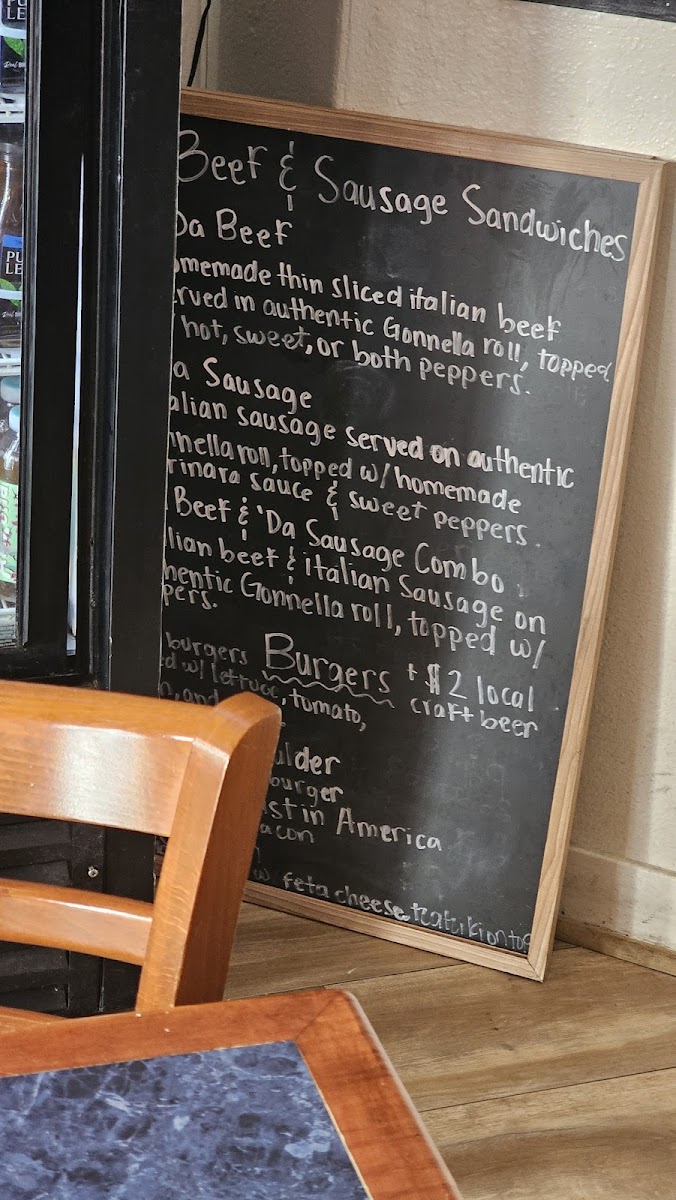 PU
LE
Beef & Sausage Sandwiches
Da Beef
omemade thin sliced italian beef
rved in authentic Gonnella roll, topped
hot, sweet, or both peppers.
a Sausage
alian sausage served on authentic
nnella roll, topped w/ homemade
rinara sauce & sweet peppers.
Beef & 'Da Sausage Combo
lian beef & italian Sausage on
hentic Gonnella roll, topped w/
pers.
Burgers + $2 local
craft beer
burgers
d w/ lettuce, tomato,
n, and
ulder
burger
st in America
acon
w feta cheese